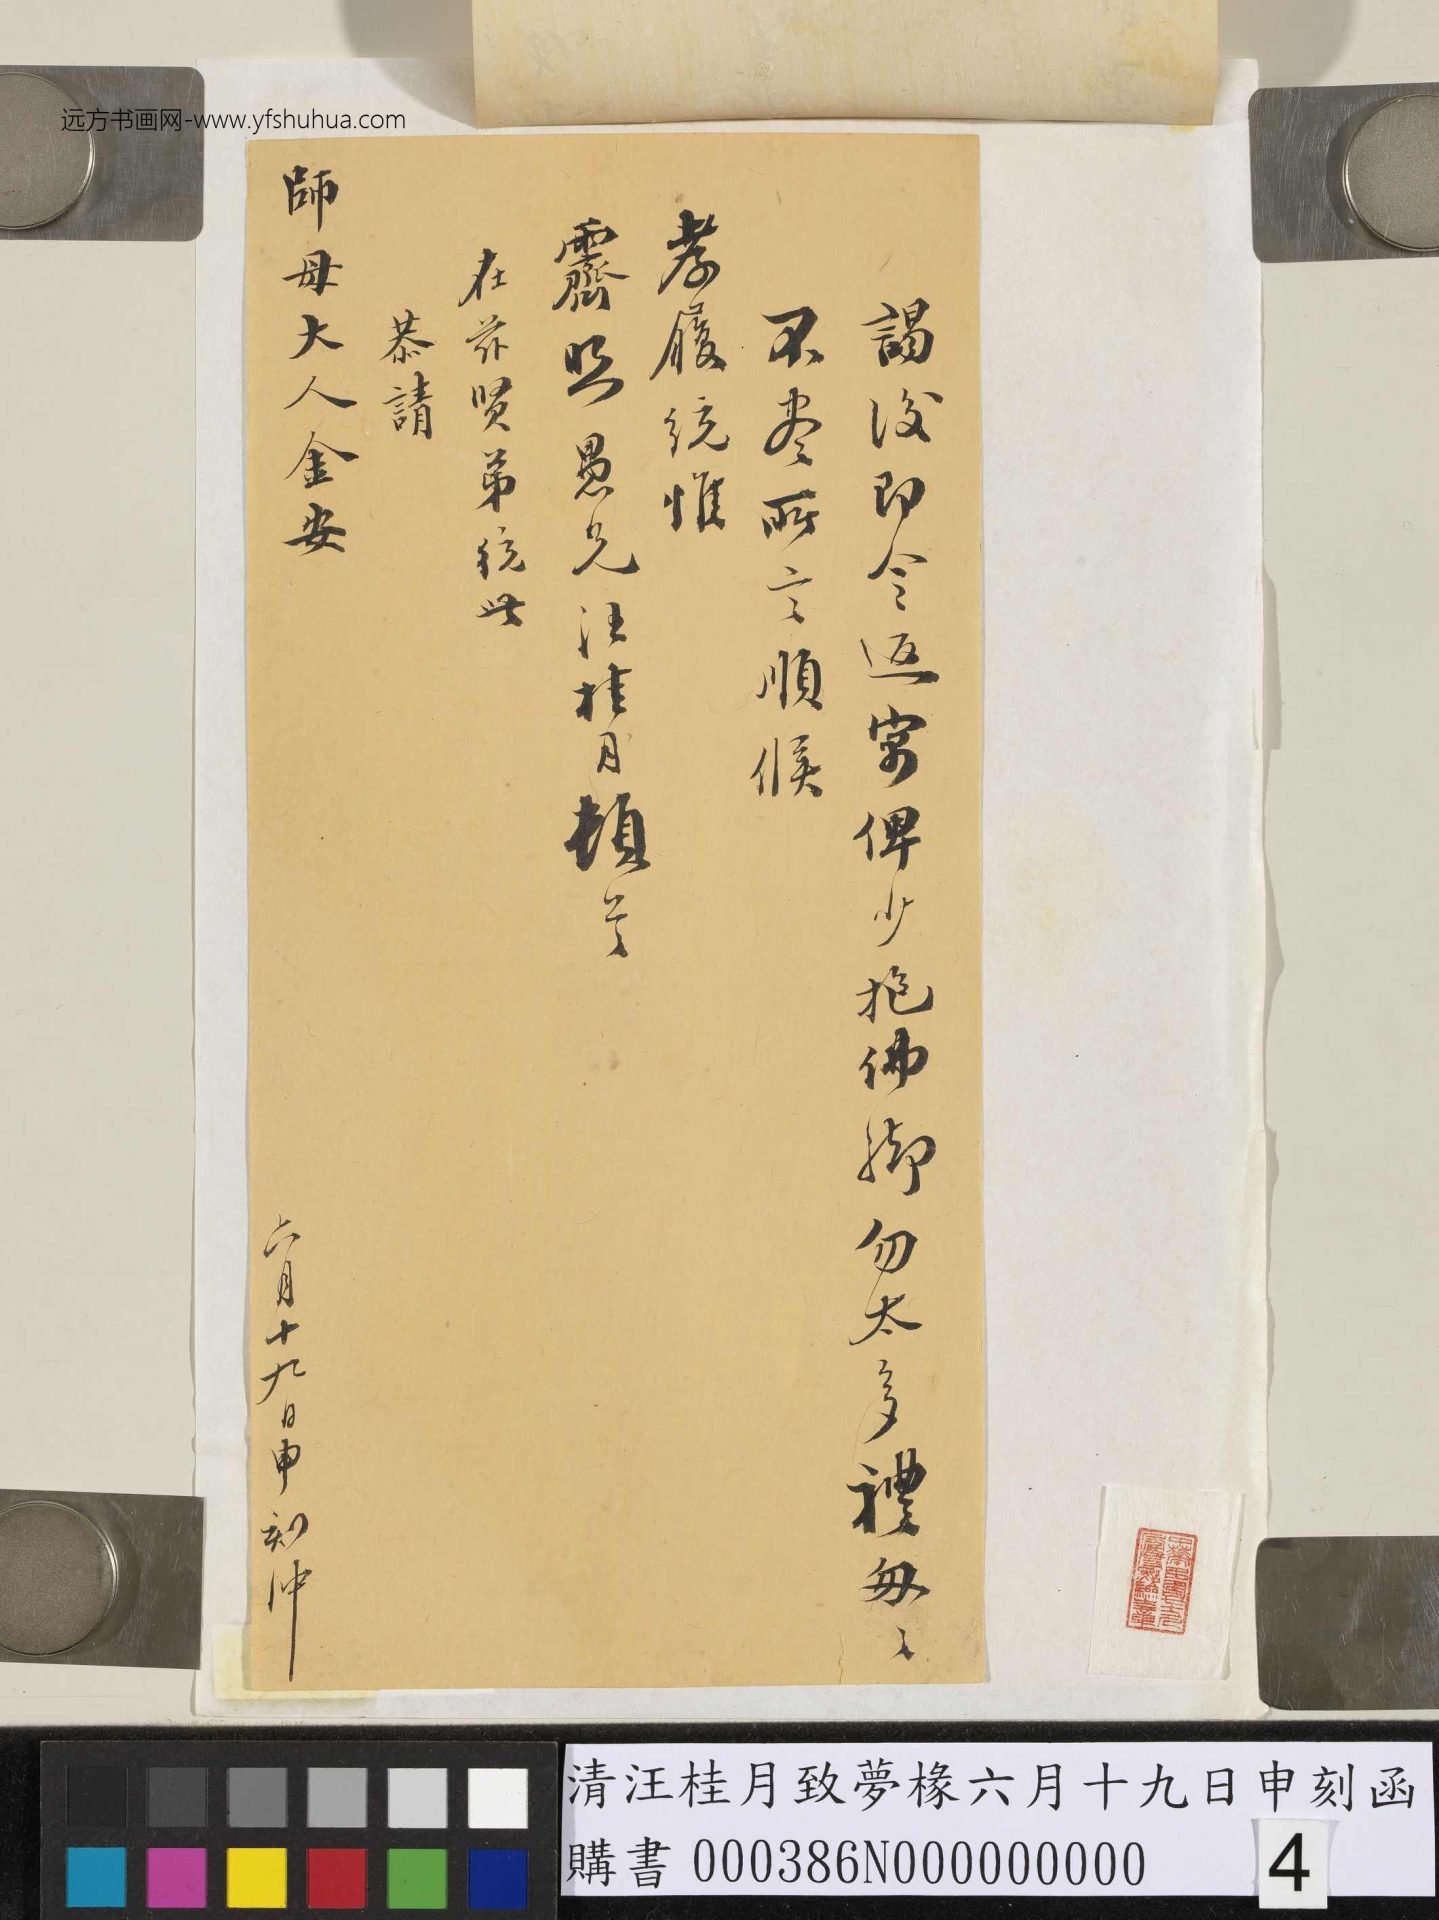 远方书画网-www.yfshuhua.com
謁後即令返寓俾少抱佛腳勿太多禮毋〻
不盡所言順候
孝履統惟
霽照愚兄汪桂月頓首
在茲賢弟統此
恭請
師母大人金安
六月十九日申刻沖
清汪桂月致夢椽六月十九日申刻函
購書 000386N000000000
4